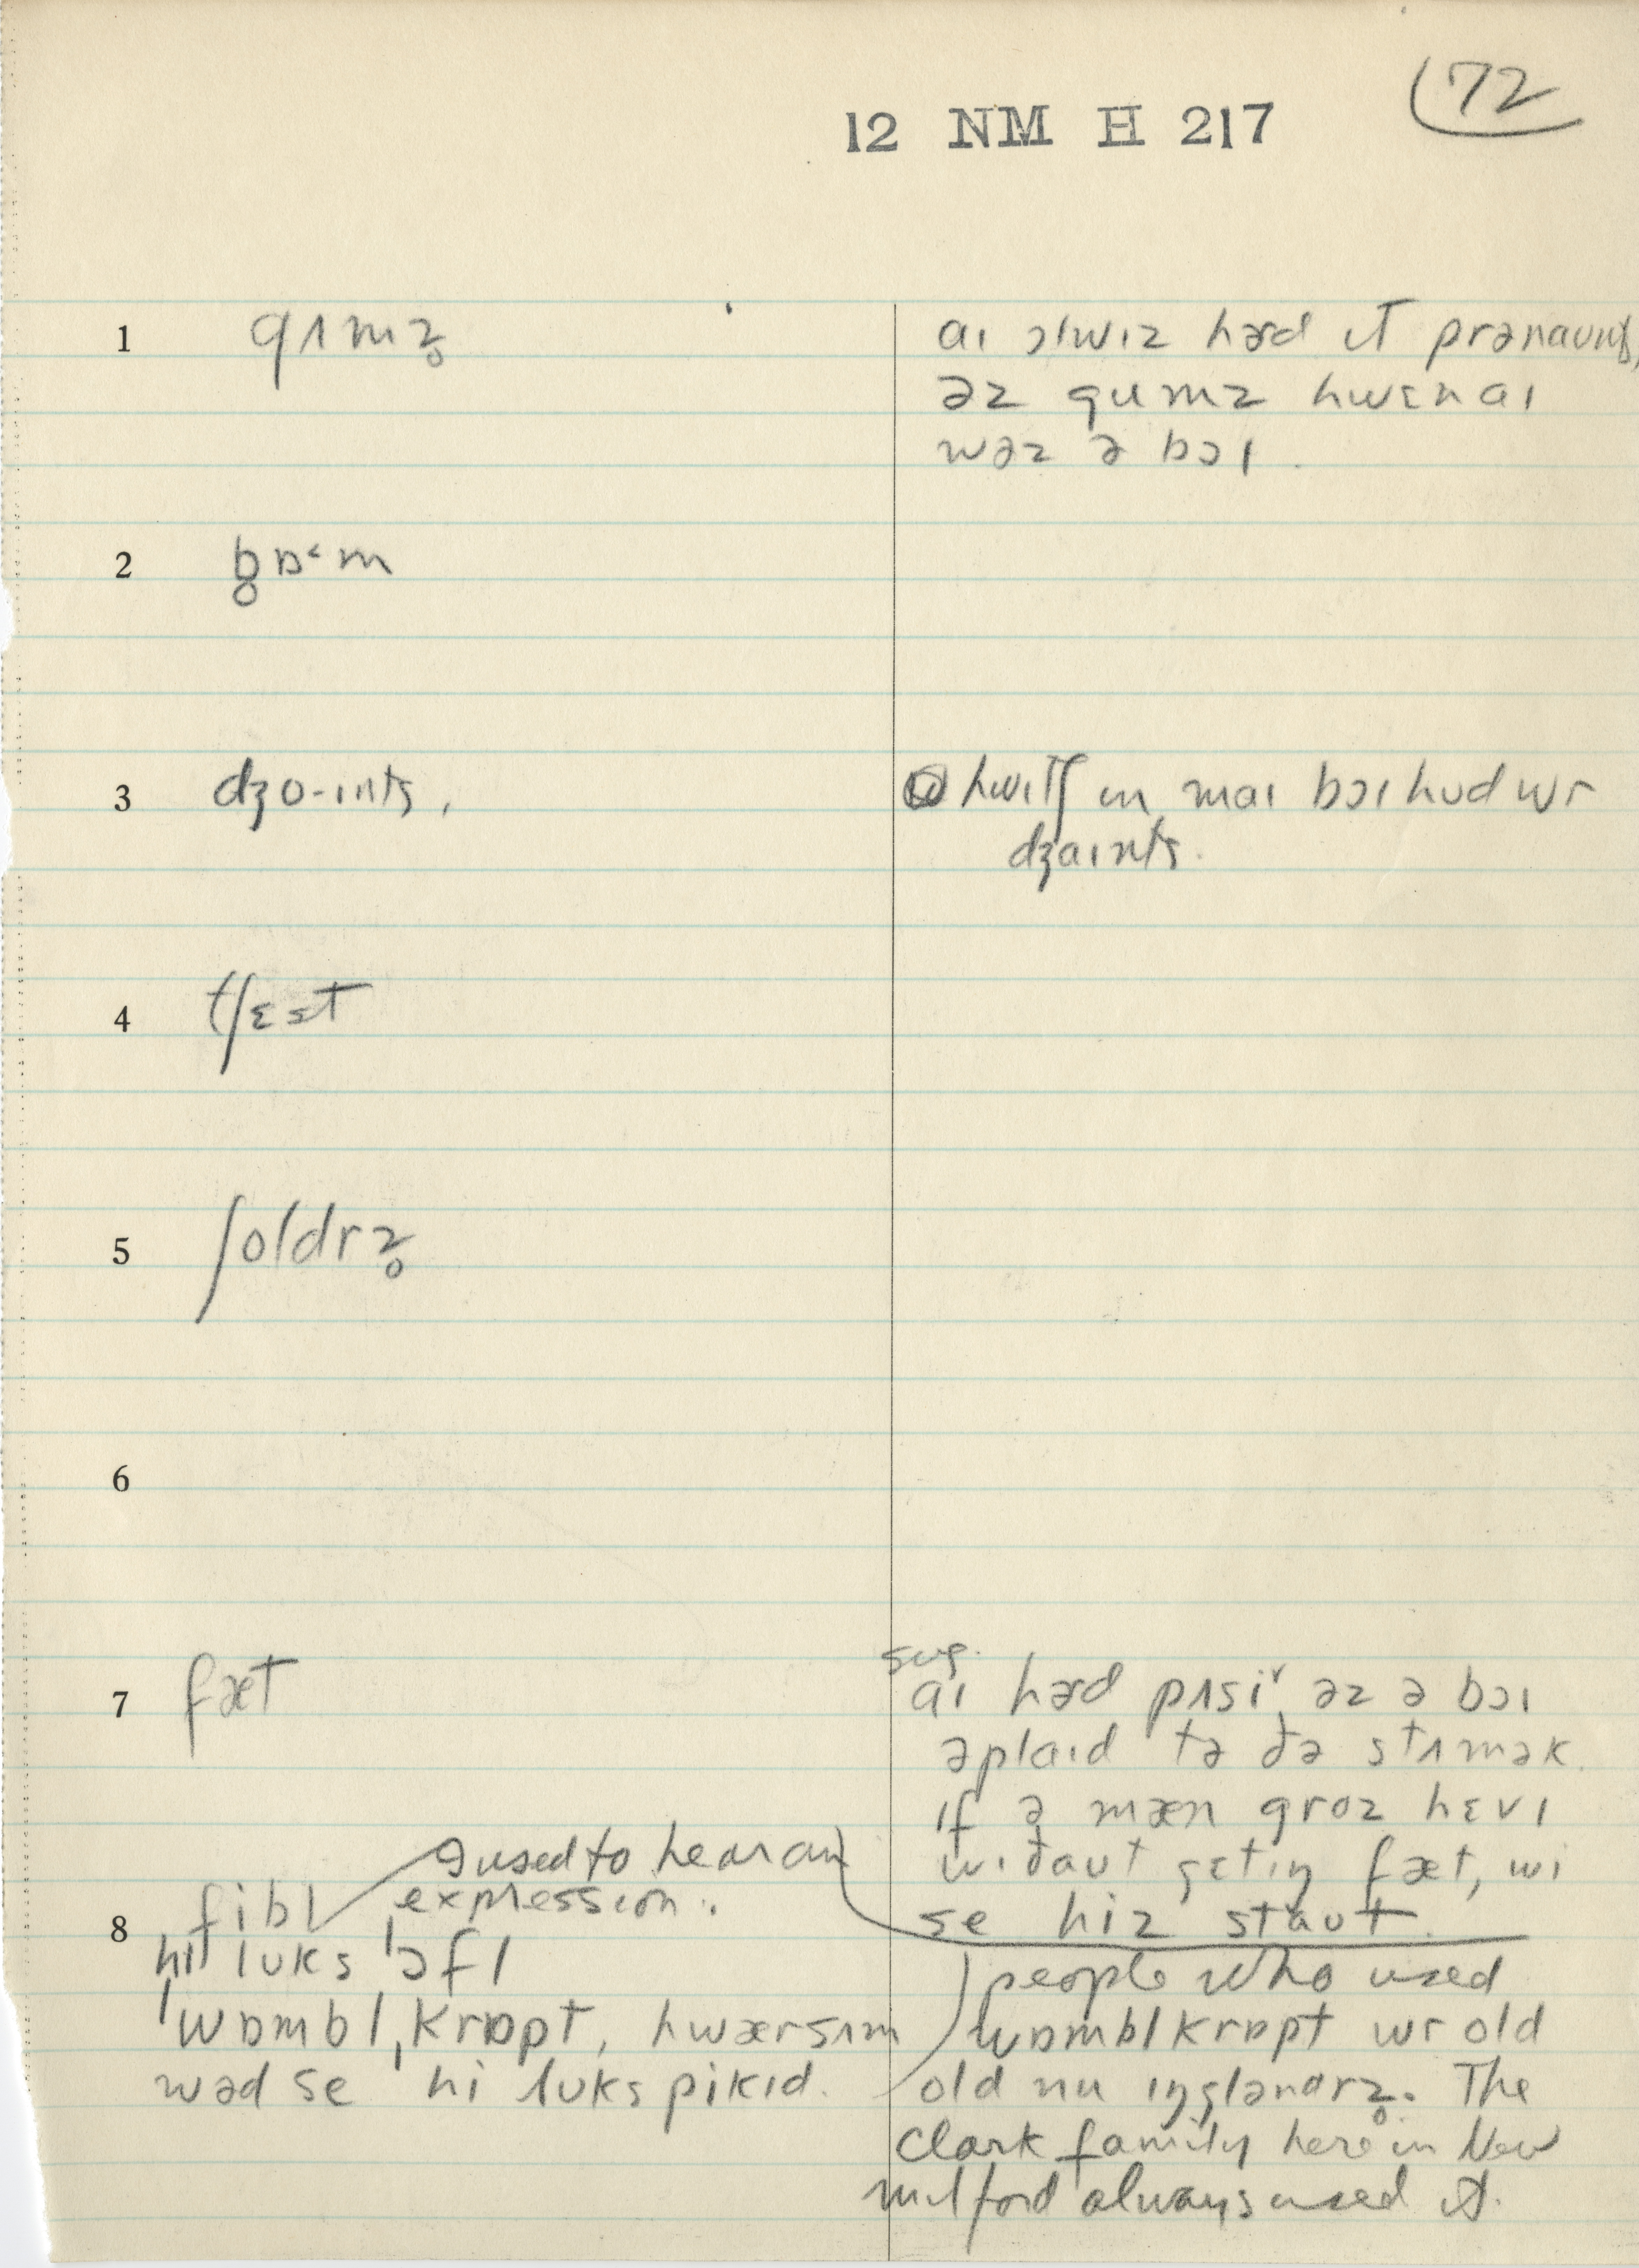 72
12 NM H 217
1 gʌmz̥
aɪ ɔlwɪz hɚd ɪt
əz gumz hwɛn aɪ
wəz ə bɔɪ.
2 b̥ɒ˂m
3 dʒo-ɪnts,
hwɪtʃ ɪn maɪ bɔɪhʊd wr
dʒaɪnts.
4 tʃɛst
5 ʃoldrz̥
6
7 fæt
sug.
aɪ hɚd pʌsi˅ əz ə bɔɪ
əplaɪd tə ðə stʌmək.
ɪf ə mæn groz hɛvɪ
wɪðaʊt gɛtɪŋ fæt, wi
se hiz staʊt.
8 fibl
I used to hear an
expression.
hi lʊks ˈɔfl
ˈwɒmbl ˌkrɒpt, hwærsʌm
wəd se hi lʊks pikɪd.
people who used
wɒmblkrɒpt wr old
old nu ɪŋgləndrz̥. The
Clark family here in New
Milford always used it.